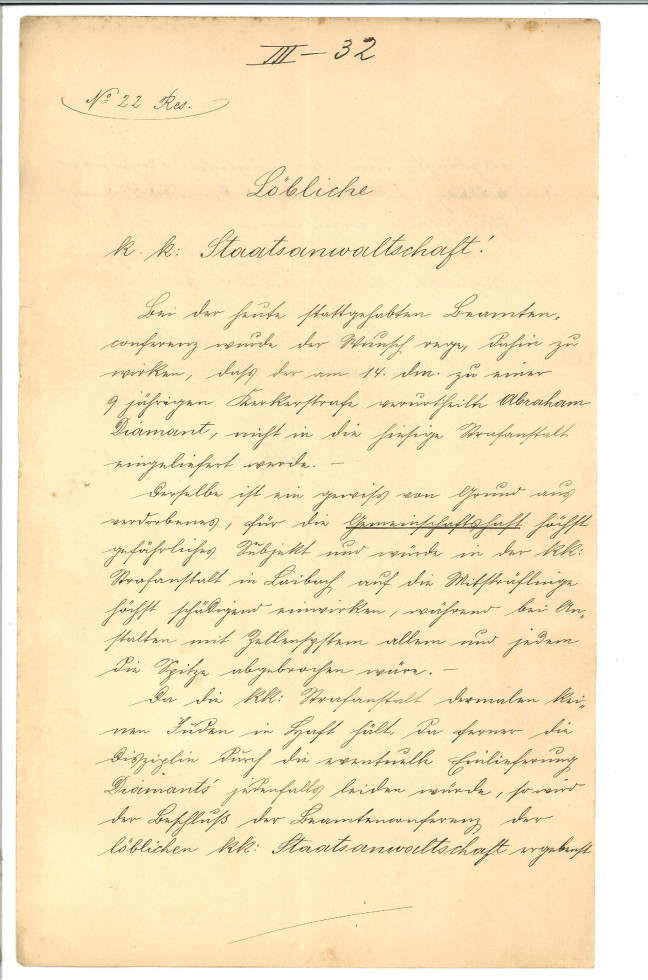 III – 32
No 22 Res.
Löbliche
k. k: Staatsanwaltschaft!
Bei der heute stattgehabten Beamten-
conferenz wurde der Wunsch rege, dahin zu
wirken, dass der am 14. dm. zu einer
9 jährigen Kerkerstrafe verurtheilte Abraham
Diamant, nicht in die hiesige Strafanstalt
eingeliefert werde. –
Derselbe ist ein gewiss von Grund aus
verdorbenes, für die Gemeinschaftshaft höchst
gefährliches Subjekt und würde in der kk:
Strafanstalt in Laibach auf die Mitsträflinge
höchst schädigend einwirken, während bei An-
stalten mit Zellensystem allem und jedem
die Spitze abgebrochen wäre. –
Da die kk: Strafanstalt dermalen kei-
nen Juden in Haft hält, da ferner die
Disziplin durch die eventuelle Einlieferung
Diamants jedenfalls leiden würde, so wird
der Beschluß der Beamtenconferenz der
löblichen kk: Staatsanwaltschaft ergebenst